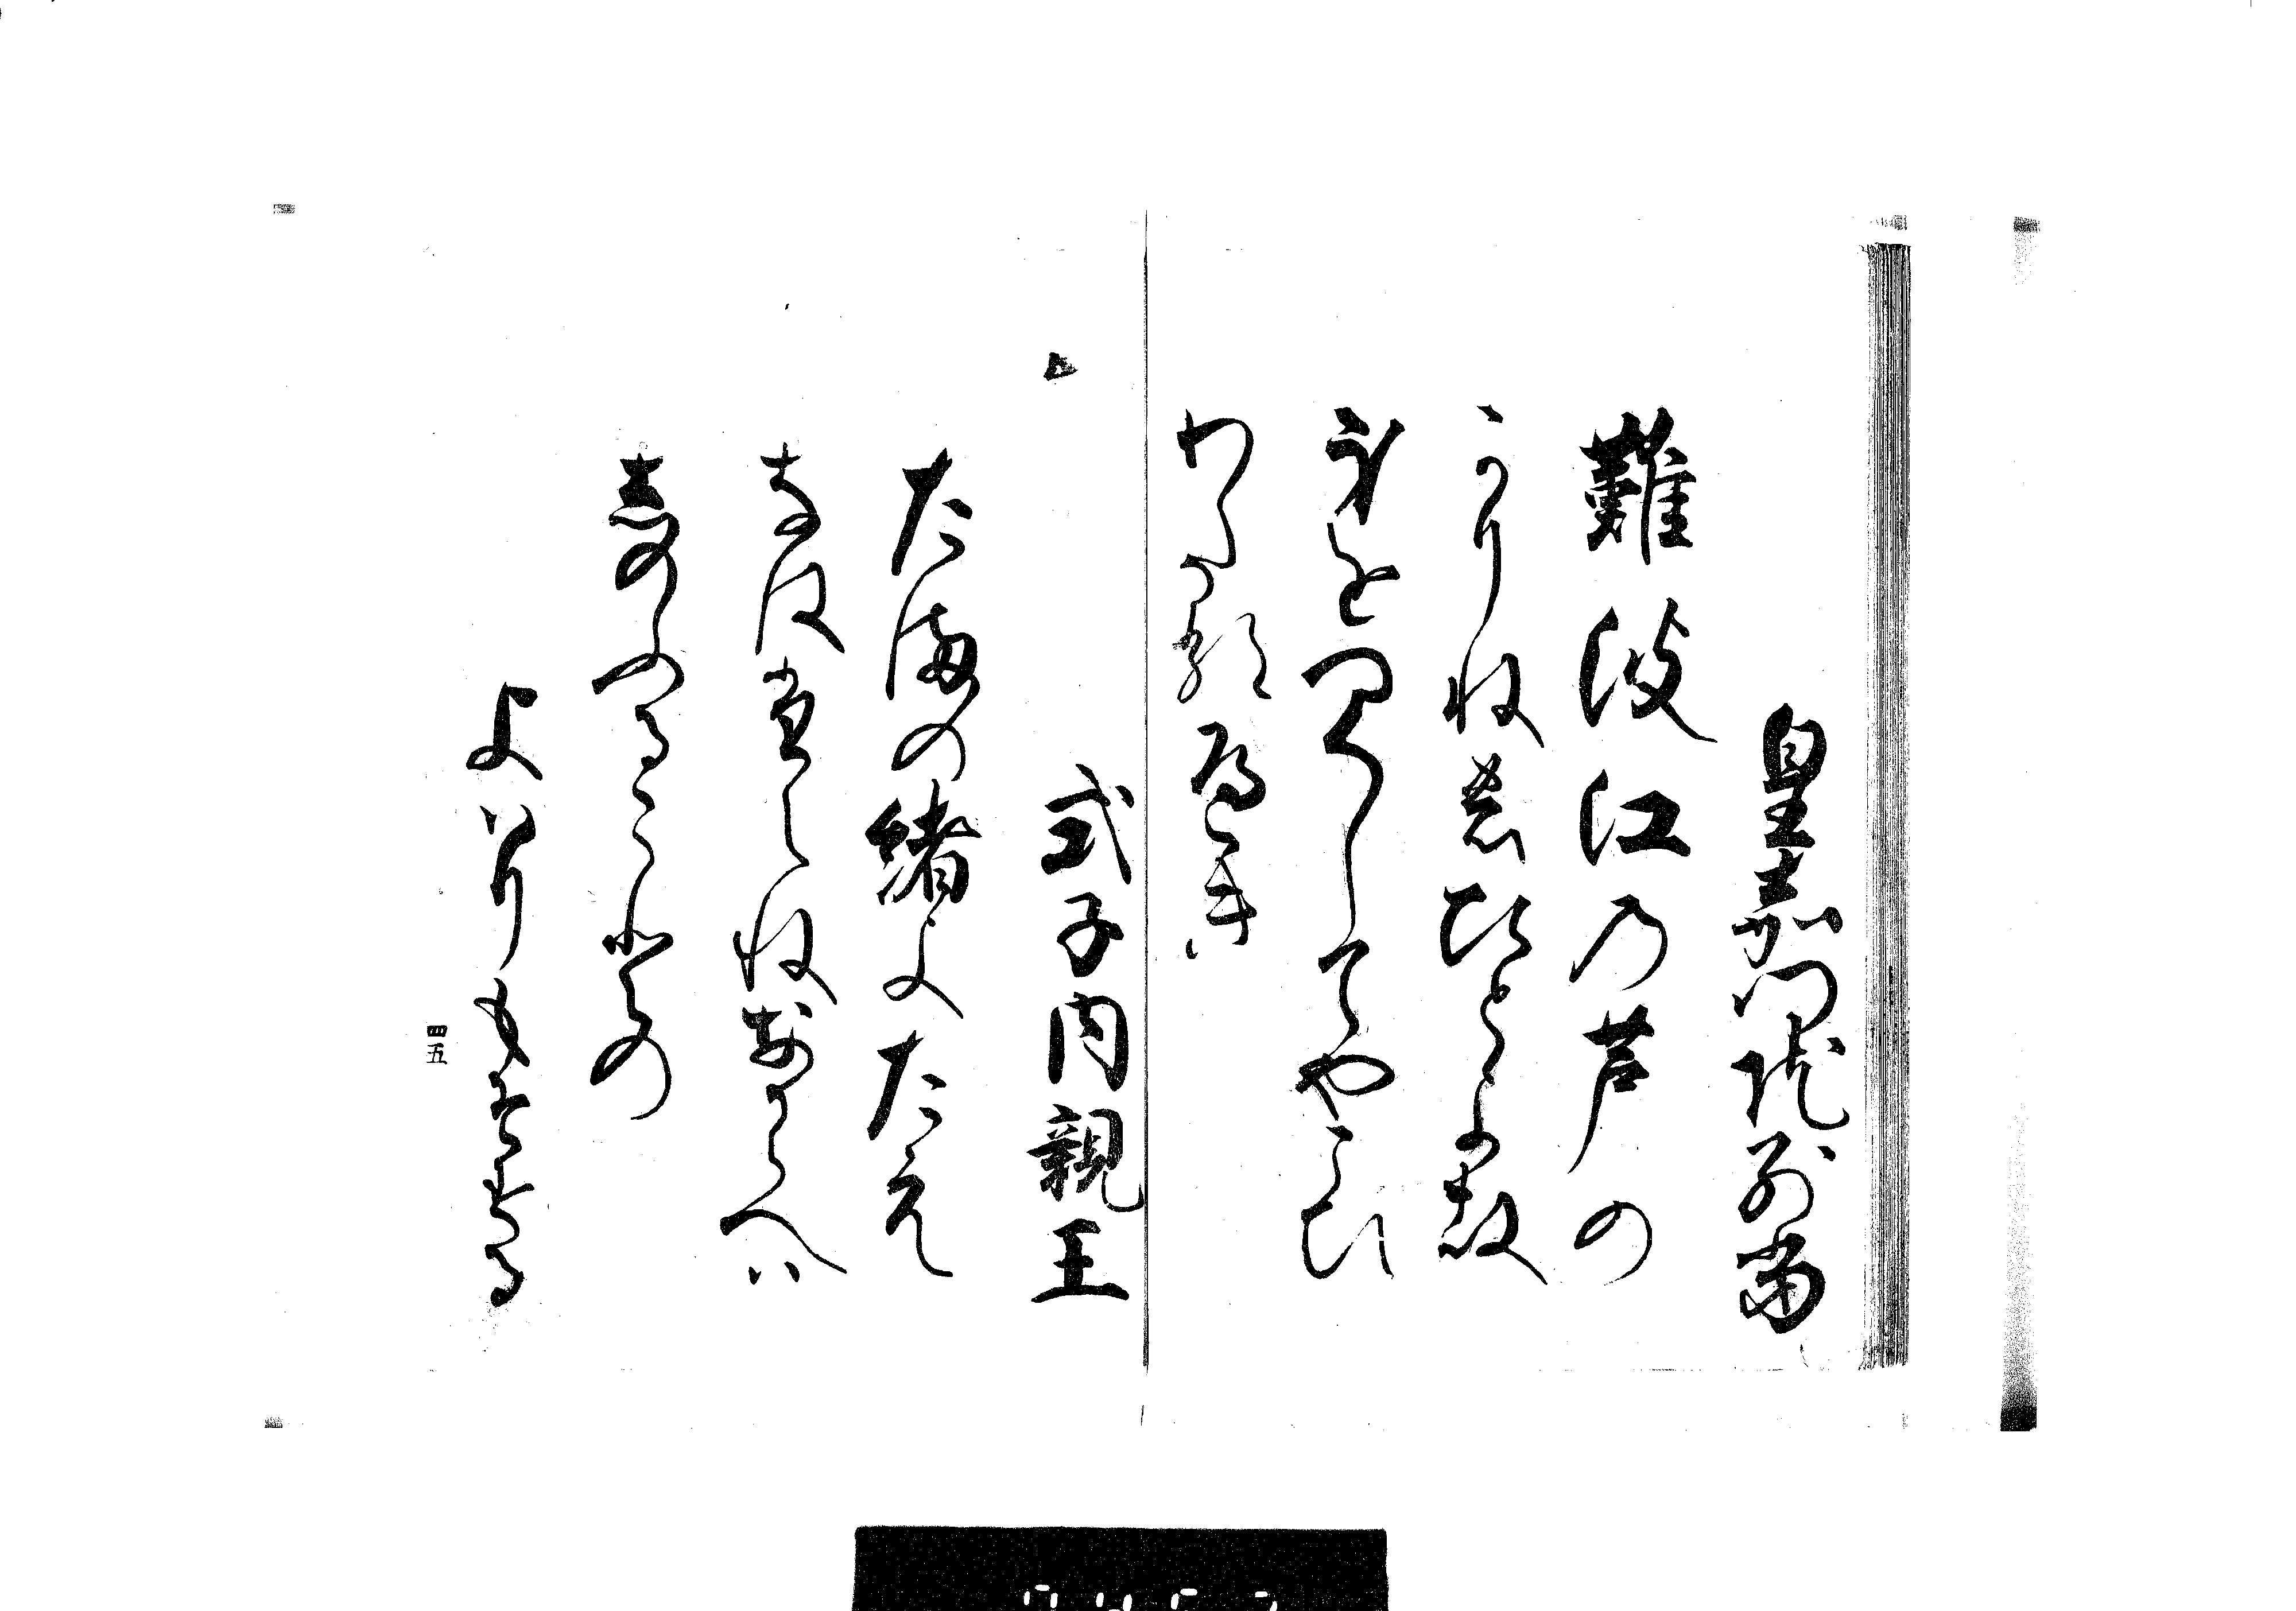 皇嘉門院別當
難波江乃芦の
かりねのひとよ故
身をつくしてやこひ
わたるへき
式子内親王
たまの緒よたえ
なはたえねなからへは
しのふることの
よはりもそする
四五